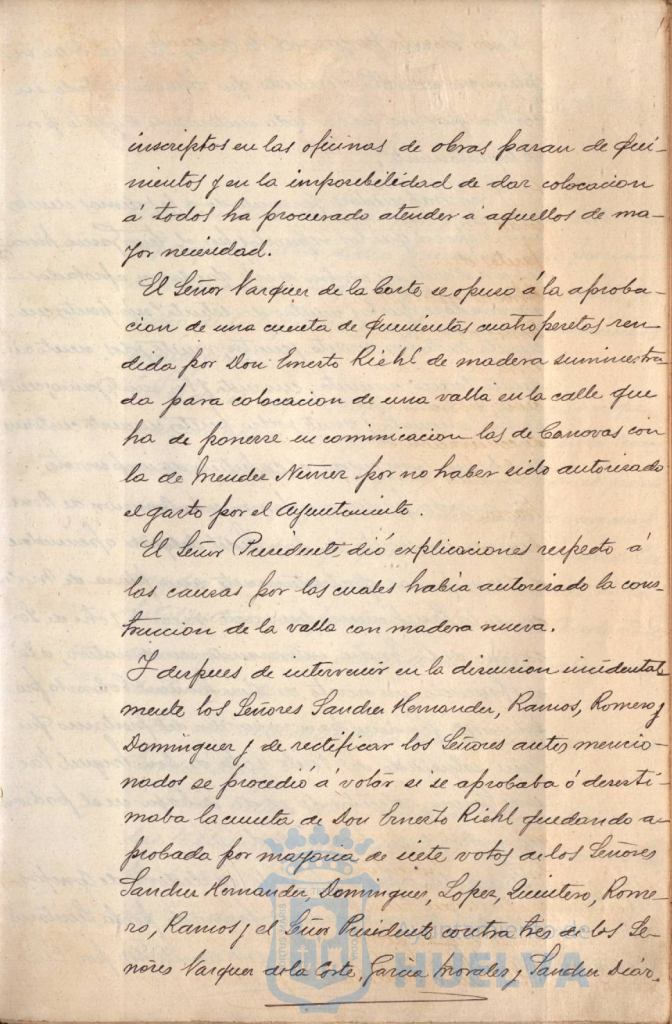 inscriptos en las oficinas de obras paran de qui-
nientos y en la imposibilidad de dar colocacion
á todos ha procurado atender á aquellos de ma-
yor necesidad.
El Señor Vazquez de la Corte se opuso á la aproba-
cion de una cuenta de quinientas cuatro pesetas ren-
dida por Don Ernesto Riehl de madera suministra
da para colocacion de una valla en la calle que
ha de ponerse en cominicacion las de Canovas con
la de Mendez Nuñez por no haber sido autorisado
el gasto por el Ayuntamiento.
El Señor Presidente dió explicaciones respecto á
las causas por las cuales habia autorisado la cons-
truccion de la valla con madera nueva.
Y despues de intervenir en la discusion incidental
mente los Señores Sanchez Hernandez, Ramos, Romero y
Dominguez y de rectificar los Señores antes mencio-
nados se procedió á votár si se aprobaba ó desesti-
maba la cuenta de Don Ernesto Riehl quedando a-
probada por mayoria de siete votos de los Señores
Sanchez Hernandez, Dominguez, Lopez, Quintero, Rome-
ro, Ramos y el Señor Presidente contra tres de los Se-
ñores Vazquez de la Corte, Garcia Morales y Sanchez Diaz.
HUELVA